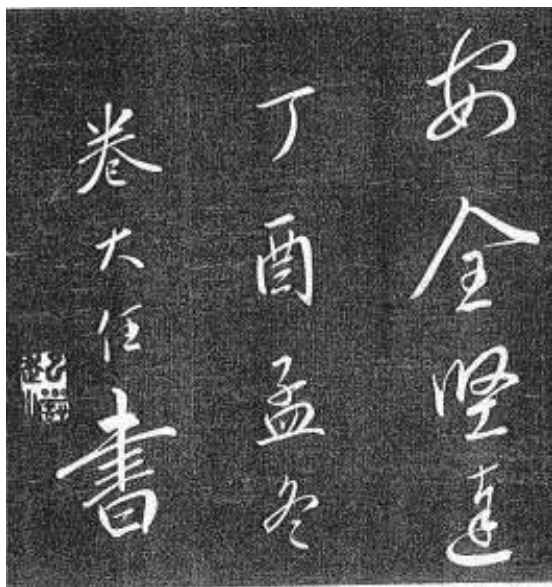 安全坚达
丁酉孟冬
卷大任书